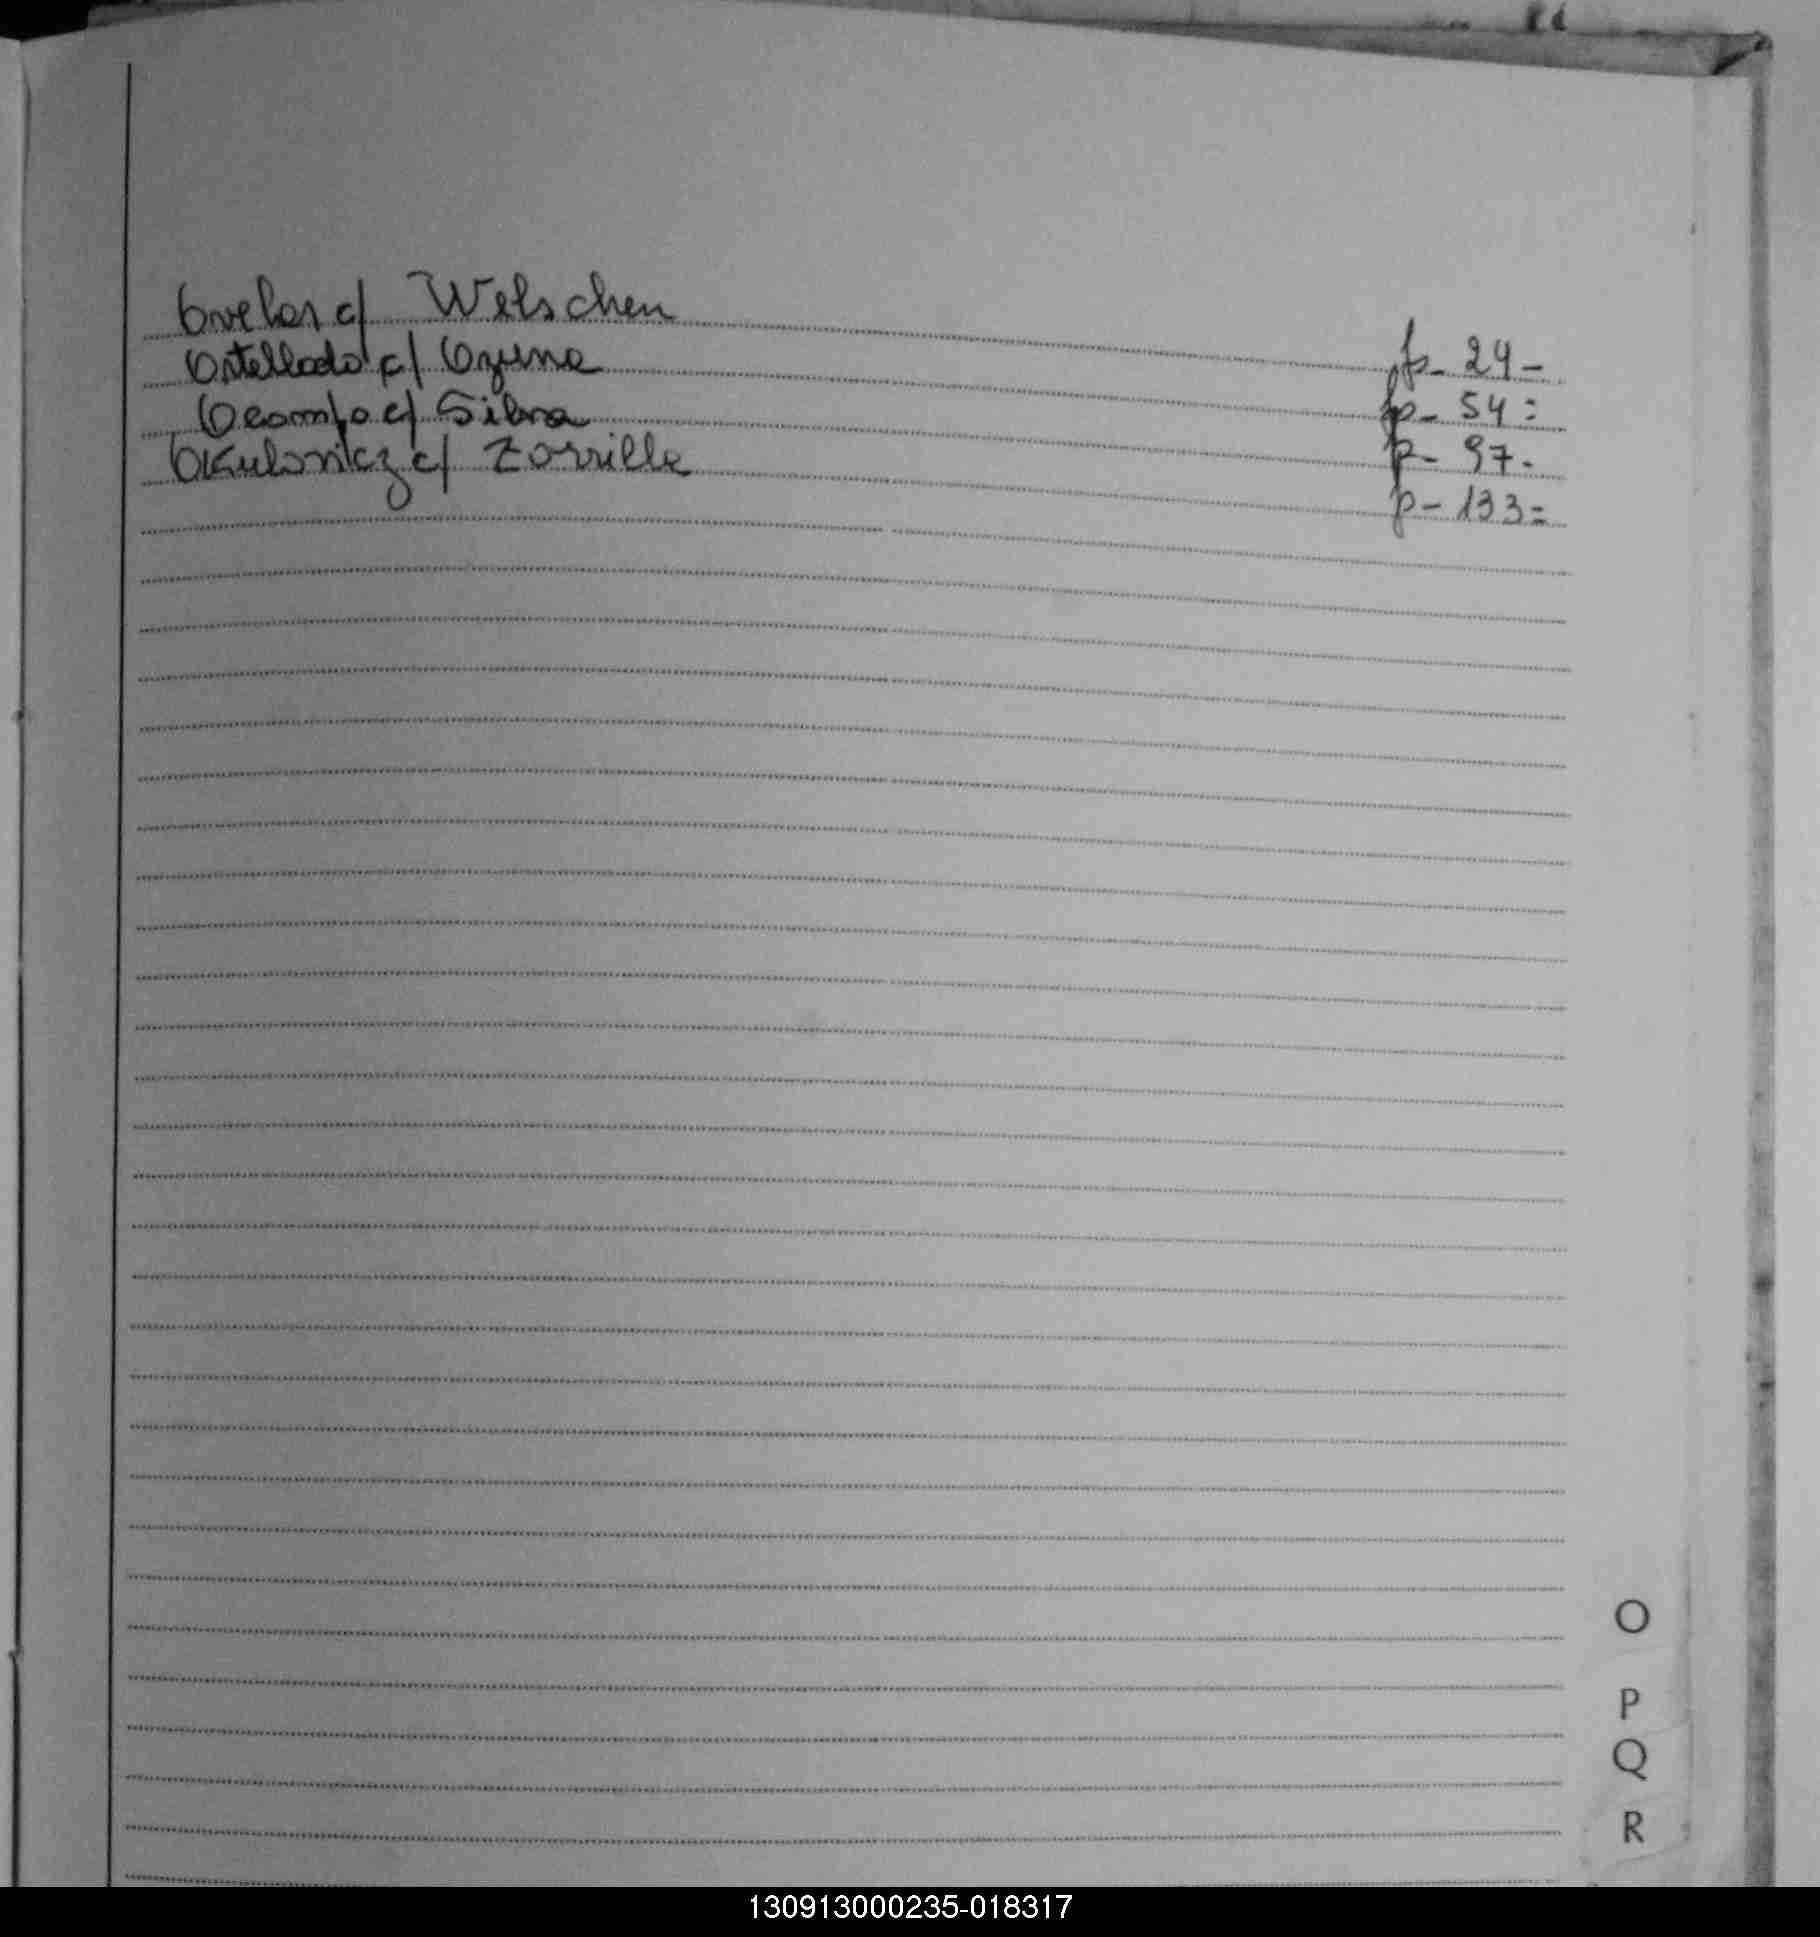 Ovelar c/ Welschen fs- 24-
Ortellado c/ Ozuna fp- 54=
Ocampo c/ Silva p- 97-
Okulovicz c/ Zorrilla p- 133=
O
P
Q
R
130913000235-018317